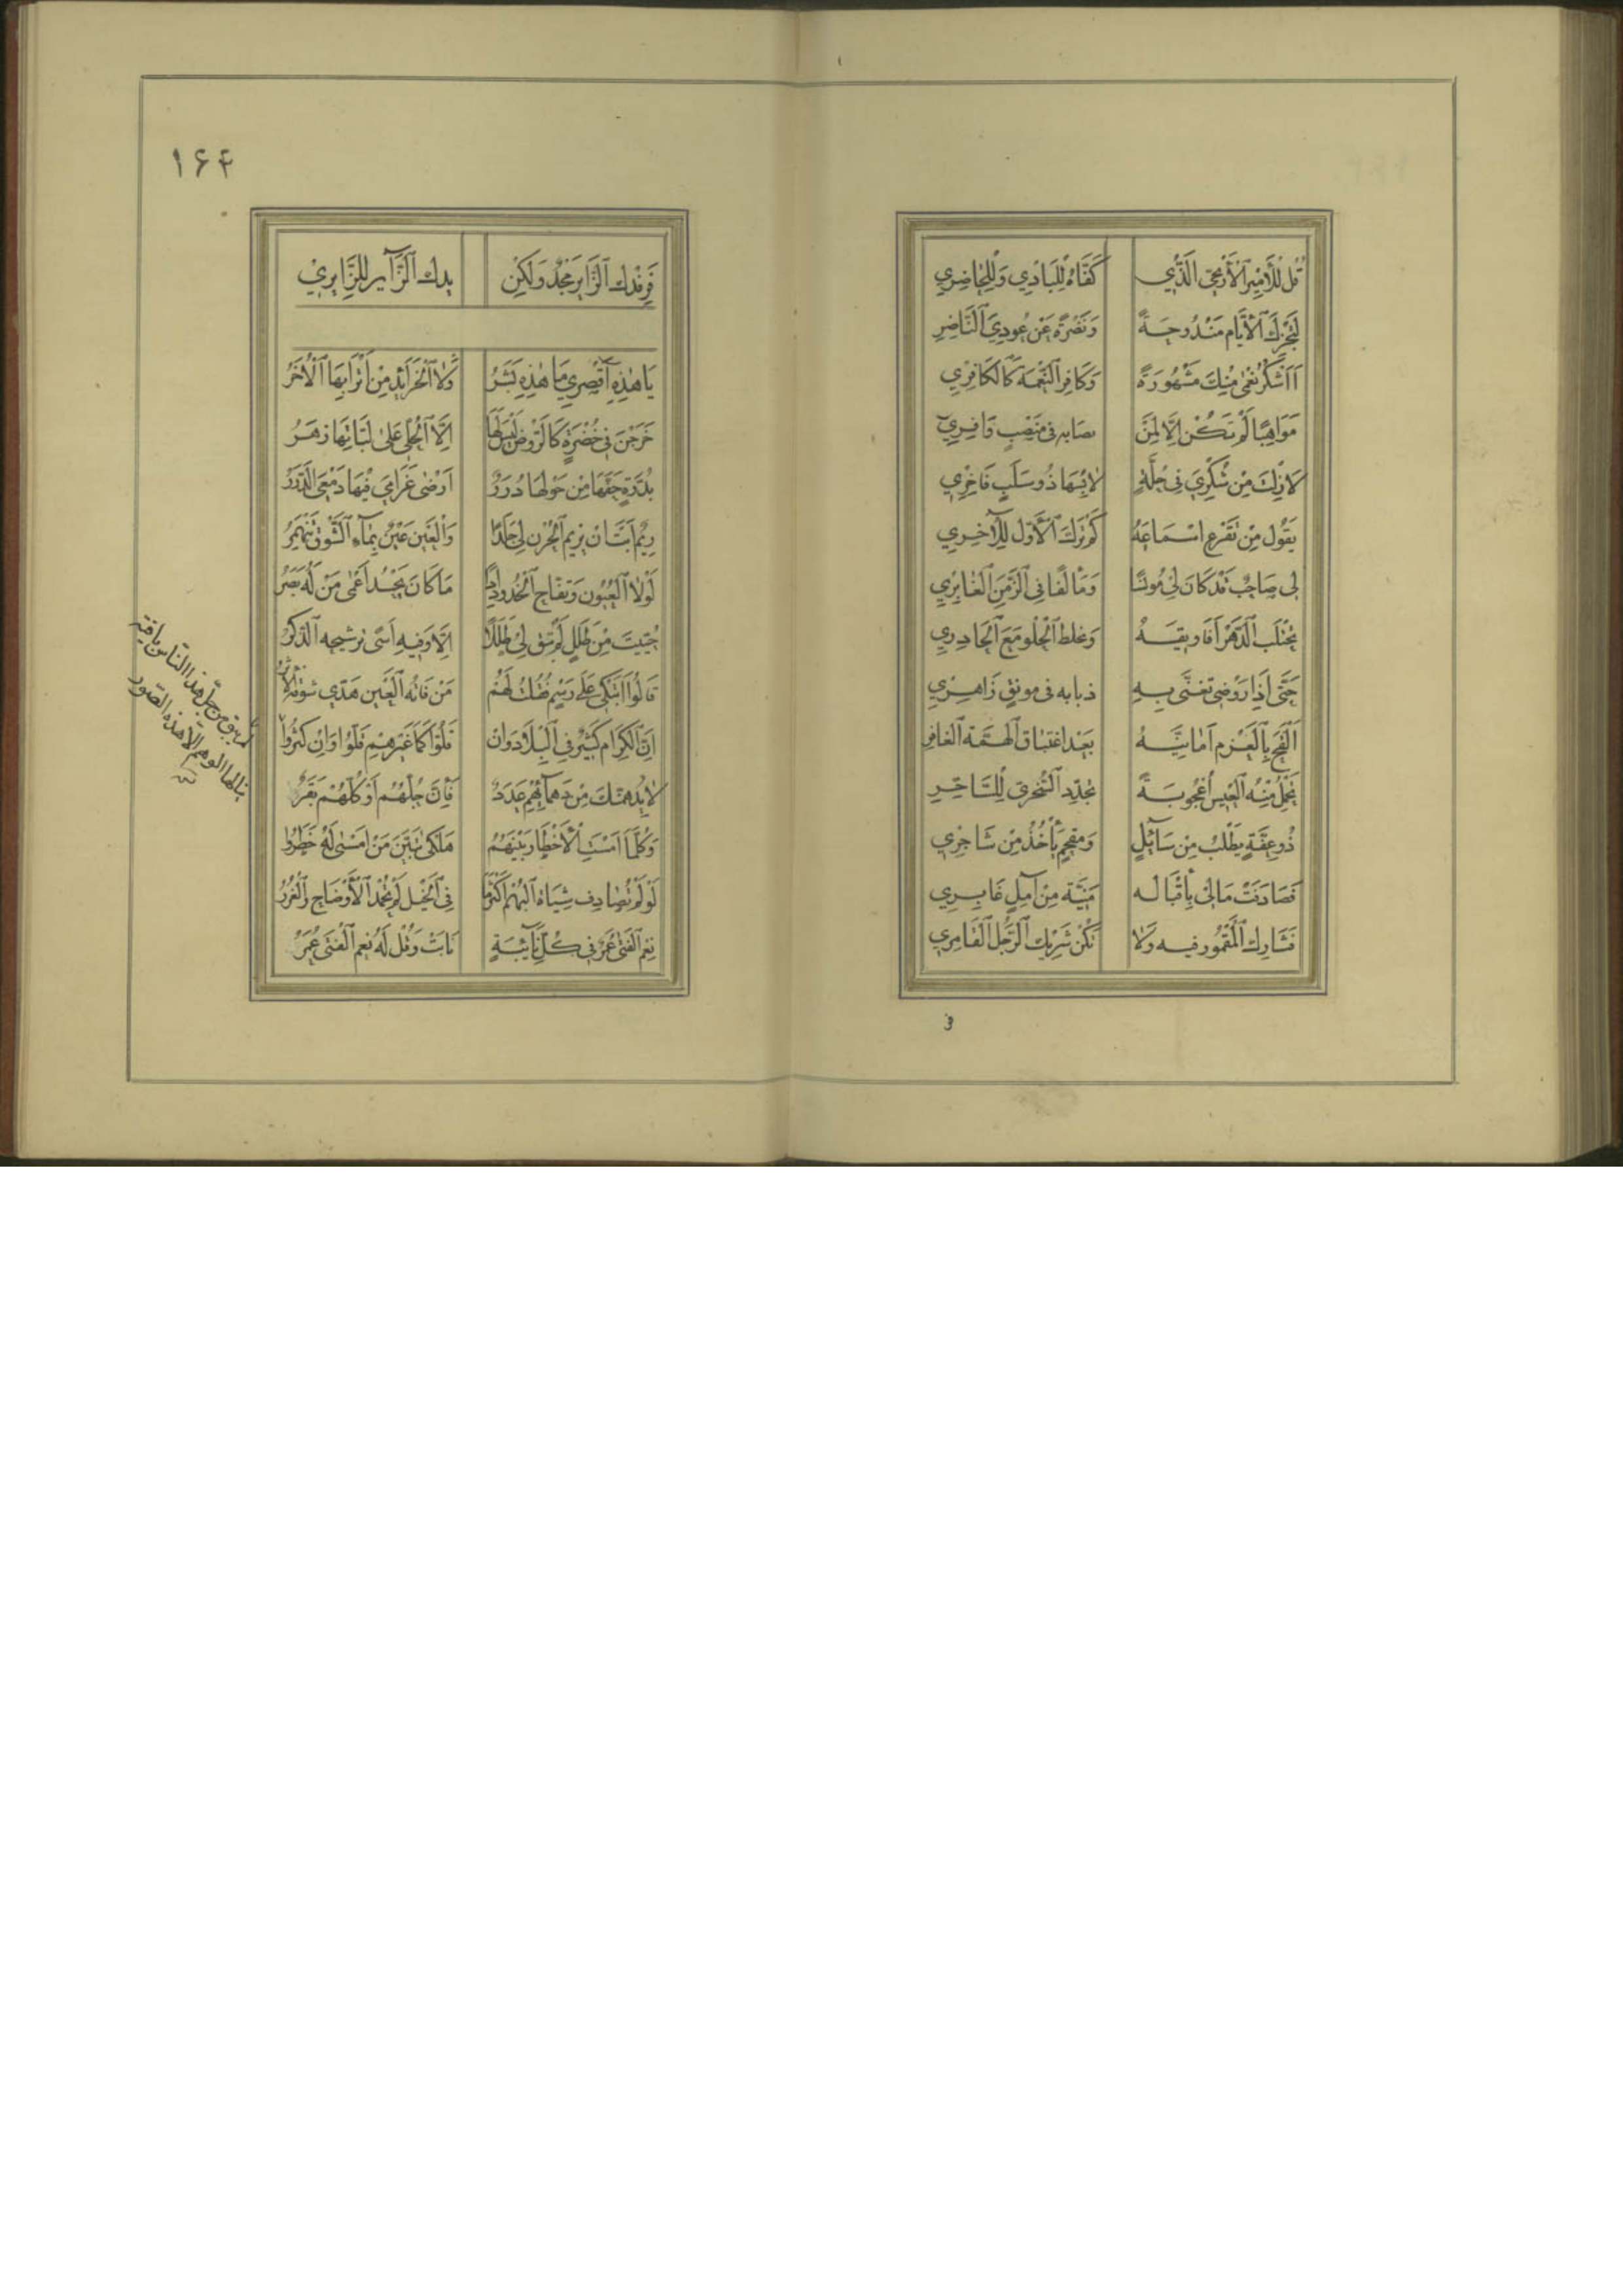 قُل لِلأَمِيرِ ٱلأَرْيَحِيِّ الَّذِي كَفَّاهُ لِلْبَادِي وَلِلْحَاضِرِي
لِتَجْزِكَ ٱلأَيَّام مَنْدُوحَةً وَنَضْرَةً عَنْ عُودِيَ ٱلنَّاضِرِ
أَأَشْكُرُ نُعْمَى مِنْكَ مَشْهُورَةً وَكَافِرُ ٱلنِّعْمَةِ كَالْكَافِرِي
مَوَاهِبًا لَمْ تَكُنْ إِلَّا لِمَنْ نصابه فى مَنْصِبٍ وَافِرِي
لَازِلْتَ مِنْ شُكْرِيَ فِي حُلَّةٍ لَابِسُهَا ذُو سَلَبٍ فَاخِرِي
يَقُولُ مِنْ تَقْرَعُ اسْمَاعَهُ كَمْ تَرَكَ ٱلأَوَّلُ لِلآخِرِي
لِى صَاحِبٌ قَدْ كَانَ لِي مُونِسًا وَمَأْلَفًا فِى ٱلزَّمَنِ ٱلْغَابِرِي
يَحْتَلِبُ ٱلدَّهْرَ أَفَاوِيقَهُ وَيخلط ٱلْحُلْوَ مَعَ ٱلْحَادِرِي
حَتَّى إِذَا رَوْضِي تَغَنَّى بِهِ ذبابه فى مونقٍ زَاهِرِي
أَلْقَحَ بِالْعَزْمِ أَمَانِيَّهُ بَعْدَ اعْتِيَاقِ ٱلْهِمَّةِ ٱلْعَاقِرِ
تَحْمِلُ مِنْهُ ٱلْعِيسُ أُعْجُوبَةً تُجَدِّدُ ٱلسُّخْرِيَّ لِلسَّاخِرِ
ذُو عِفَّةٍ يَطْلُبُ مِنْ سَائِلٍ وَمُفْحَمٌ يَأْخُذُ مِنْ شَاعِرِي
فَصَادَفَتْ مَالِيْ بِأَقْبَالِه مَنِيَّة مِنْ آمِلٍ غَابِرِي
فَشَارِك ٱلْمَقْمُورَ فِيهِ وَلَا تَكُنْ شَرِيكَ ٱلرَّجُلِ ٱلْقَامِرِي
١۶۴
فَرِفْدُكَ ٱلزَّايِرَ مَجْدٌ وَلَكِنْ رِفْدُكَ ٱلزَّآيِرَ لِلزَّايِرِيْ
يَا هٰذِهِ أَقْصِرِي مَا هٰذِهِ بَشَرُ وَلَا ٱلْخَرَائِدُ مِنْ أَتْرَابِهَا ٱلأُخَرُ
خَرَجْنَ فِي خُضْرَةٍ كَالرَّوْضِ لَيْسَ لَهَا إِلَّا ٱلْحُلِيَّ عَلَى لَبَّاتِهَا زَهَرُ
بِدُرَّةٍ حَفَّهَا مِنْ حَوْلِهَا دُرَرٌ أَرْضَى غَرَامِيَ فِيهَا دَمْعِيَ ٱلدُّرَرُ
رِيمٌ أَبَتْ أَنْ يَرِيمَ ٱلْحُزْنُ لِي جَلَدًا وَٱلْعَيْنُ عَيْنٌ بِمَآءِ ٱلشَّوْقِ تَنْهَمِرُ
لَوْلَا ٱلْعُيُونُ وَتُفَّاحُ ٱلْخُدُودِ إِذًا مَا كَانَ يَحْسُدُ أَعْمَى مَنْ لَهُ بَصَرُ
حُيِّيتَ مِنْ طَلَلٍ لَمْ تُبْقِ لِيْ طَلَلًا إِلَّا وَفِيهِ أَسًى ترشيحه ٱلذِّكَرُ
قَالُوا أَتَبْكِي عَلَى رَسْمٍ فَقُلْتُ لَهُمْ مَنْ فَاتَهُ ٱلْعَيْنُ هَدَّى شَوْقَهُ ٱلأَثَرُ
إِنَّ ٱلْكِرَامَ كَثِيرٌ فِي ٱلْبِلَادِ وَإِنْ قَلُّوا كَمَا غَيْرُهُمْ قَلُّوا وَإِنْ كَثُرُوا
لَا يُدْهِمَنَّكَ مِنْ دَهْمَائِهِمْ عَدَدٌ فَإِنَّ جُلَّهُمْ أَوْ كُلَّهُمْ بَقَرٌ
وَكُلَّمَا أَمْسَتِ ٱلأَخْطَارُ بَيْنَهُمْ هَلْكَى تَبَيَّنَ مَنْ أَمْسَى لَهُ خَطَرُ
لَوْ لَمْ تُصَادِفْ شِيَاةُ ٱلْبُهْمِ أَكْثَرَ مَا فِى ٱلْخَيْلِ لَمْ تُحْمَدِ ٱلأَوْضَاحُ وَٱلْغُرَرُ
نِعْمَ ٱلْفَتَى عُمَرٌ فِى كُلِّ نَآئِبَةٍ نَابَتْ وَقُلْ لَهُ نِعْمَ ٱلْفَتَى عُمَرُ
لم يبق من جل هذا الناس باقية
ينالها الوهم الا هذه الصور